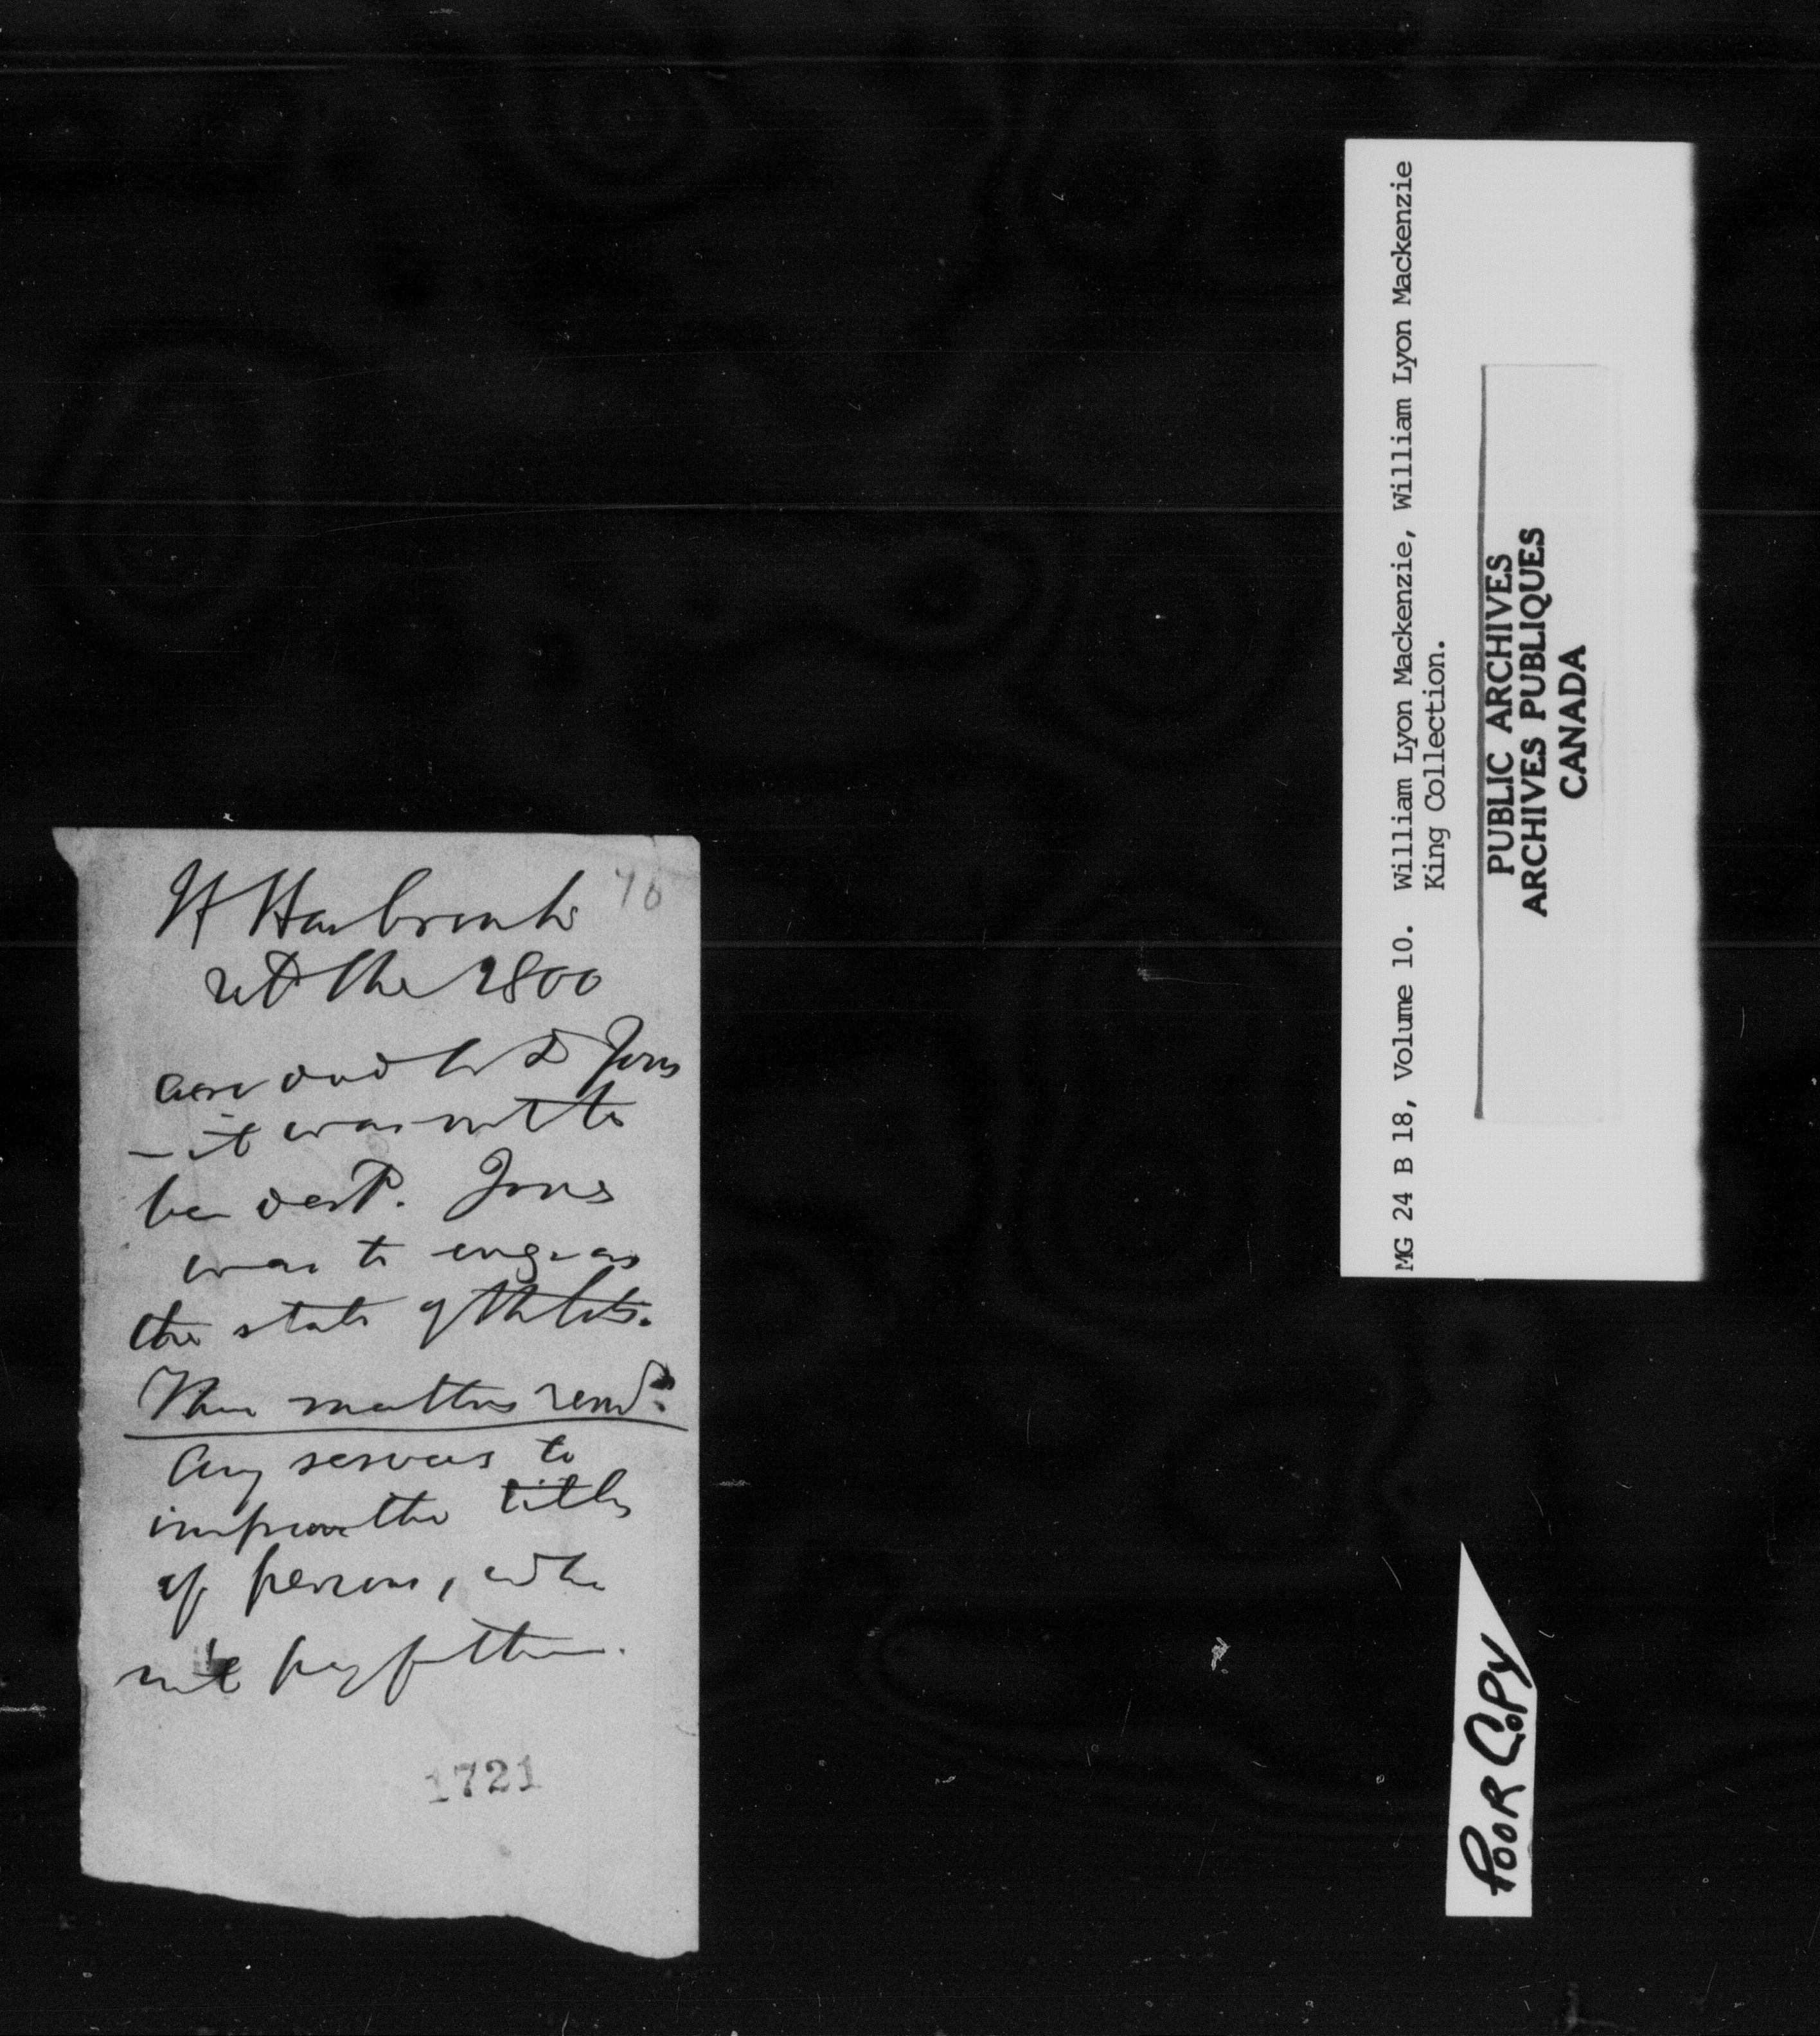 76
the 1800
and
– it was not to
be dest. Jones
was to
the state of the lots.
matters
Any services to
improve the titles
of persons, who
not pay for them.
1721
MG 24 B 18, Volume 10. William Lyon Mackenzie, William Lyon Mackenzie
King Collection.
PUBLIC ARCHIVES
ARCHIVES PUBLIQUES
CANADA
POOR COPY